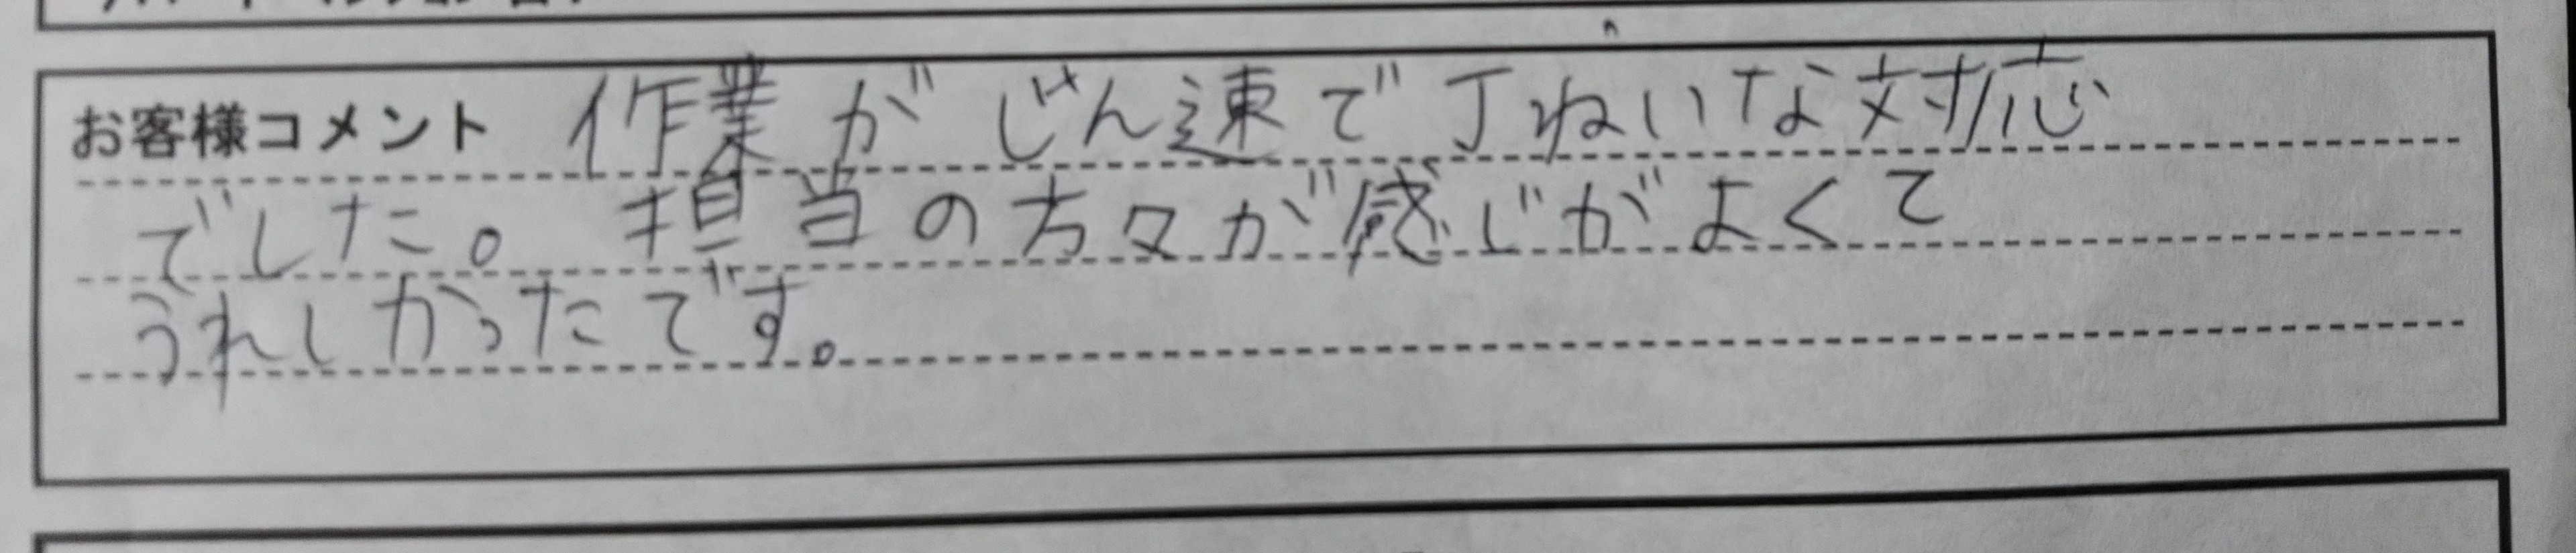 お客様コメント 作業がじん速で丁ねいな対応
でした。担当の方々が感じがよくて
うれしかったです。